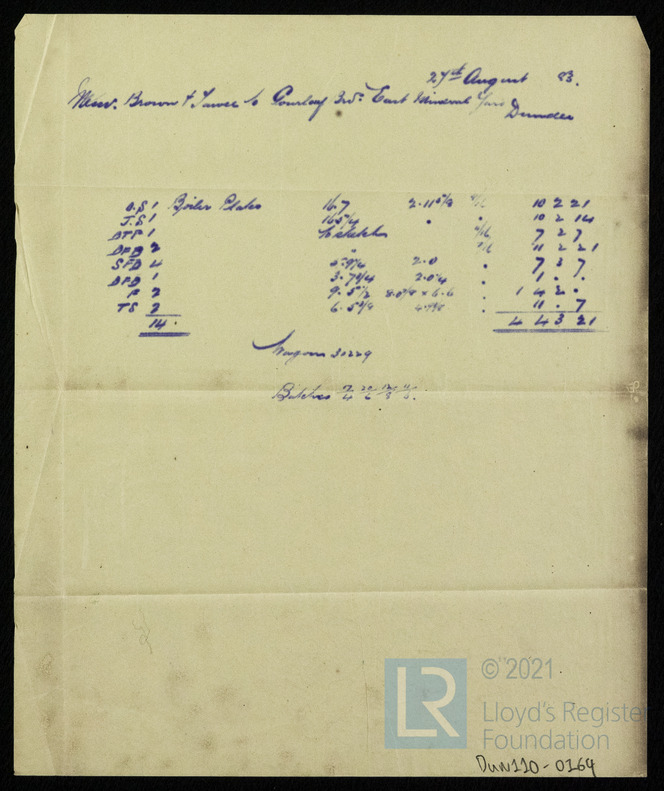 27th August 83.
Messrs. Brown & Tawse to Gourlay Bros East Mineral Yard
Dundee
O.S 1 Boiler Plates 16.7 2.11 5/8 10 2 21
T.S 1 16 5 1/4 " " 10 2 14
BTP 1 to sketch 11/16 7 2 7
DPB 2 " 11 2 21
SFD 4 2.0 " 7 3 7
DPD 1 3.7 3/4 2.0 1/4 " 1 . .
F 2 9.5 1/2 8.0 1/8 x 6.6 " 1 4 2 .
TS 2 6.5 3/8 " 11 . 7
14. 4 4 3 21
Wagon 30229
Batches
© 2021
LR
Lloyd's Register
Foundation
Dun110-0164